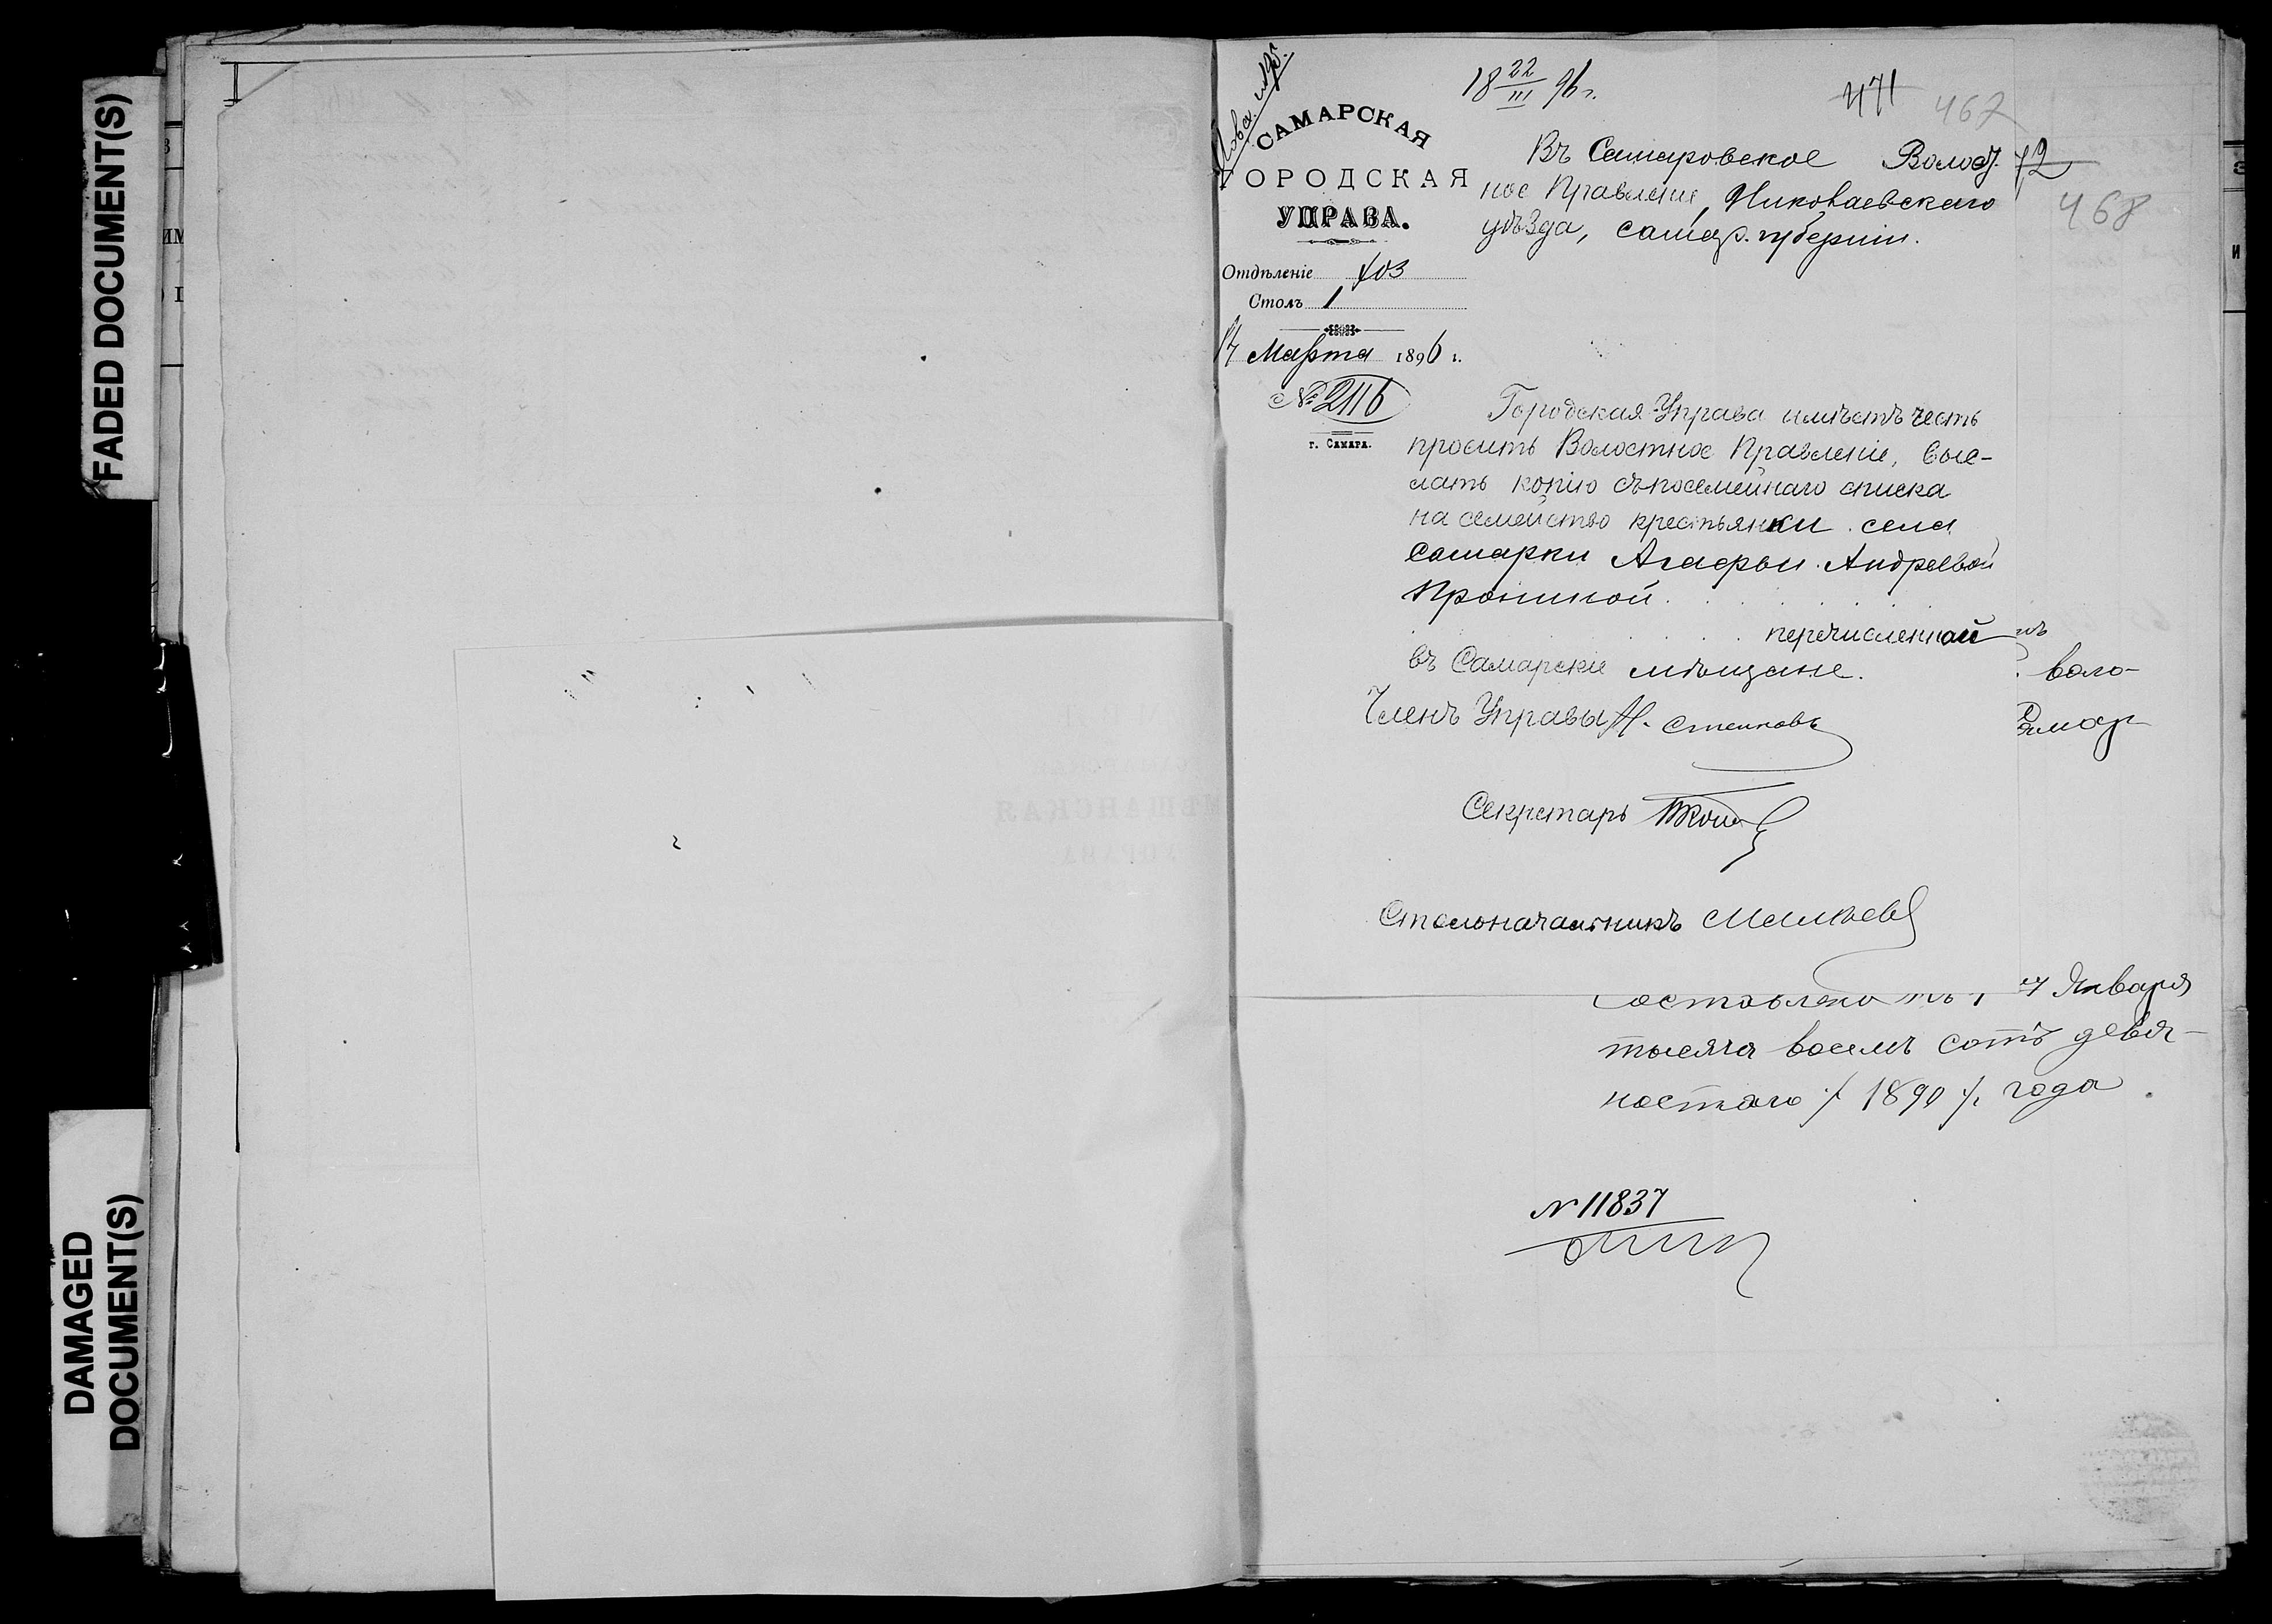 FADED DOCUMENT(S)
DAMAGED
DOCUMENT(S)
САМАРСКАЯ
ГОРОДСКАЯ
УПРАВА.
Отдѣленіе
Столъ 1
17 Марта 1896 г.
№ 2116
г. САМАРА.
18 22/III 96 г.
471
467
Въ Самаровское Волост
72
ное Правленіе, Николаевскаго
468
уѣзда, Самар. губерніи.
Городская Управа имѣетъ честь
просить Волостное Правленіе, выс-
лать копію съ посемейнаго списка
на семейство крестьянки села
Самарки Агафьи Андреевой
Прониной
перечисленной
въ Самарскіе мѣщане.
воло-
Членъ Управы
Секретарь
Столоначальникъ
Января
тысяча восемь сотъ девя-
ностаго /1890/. года
№ 11837